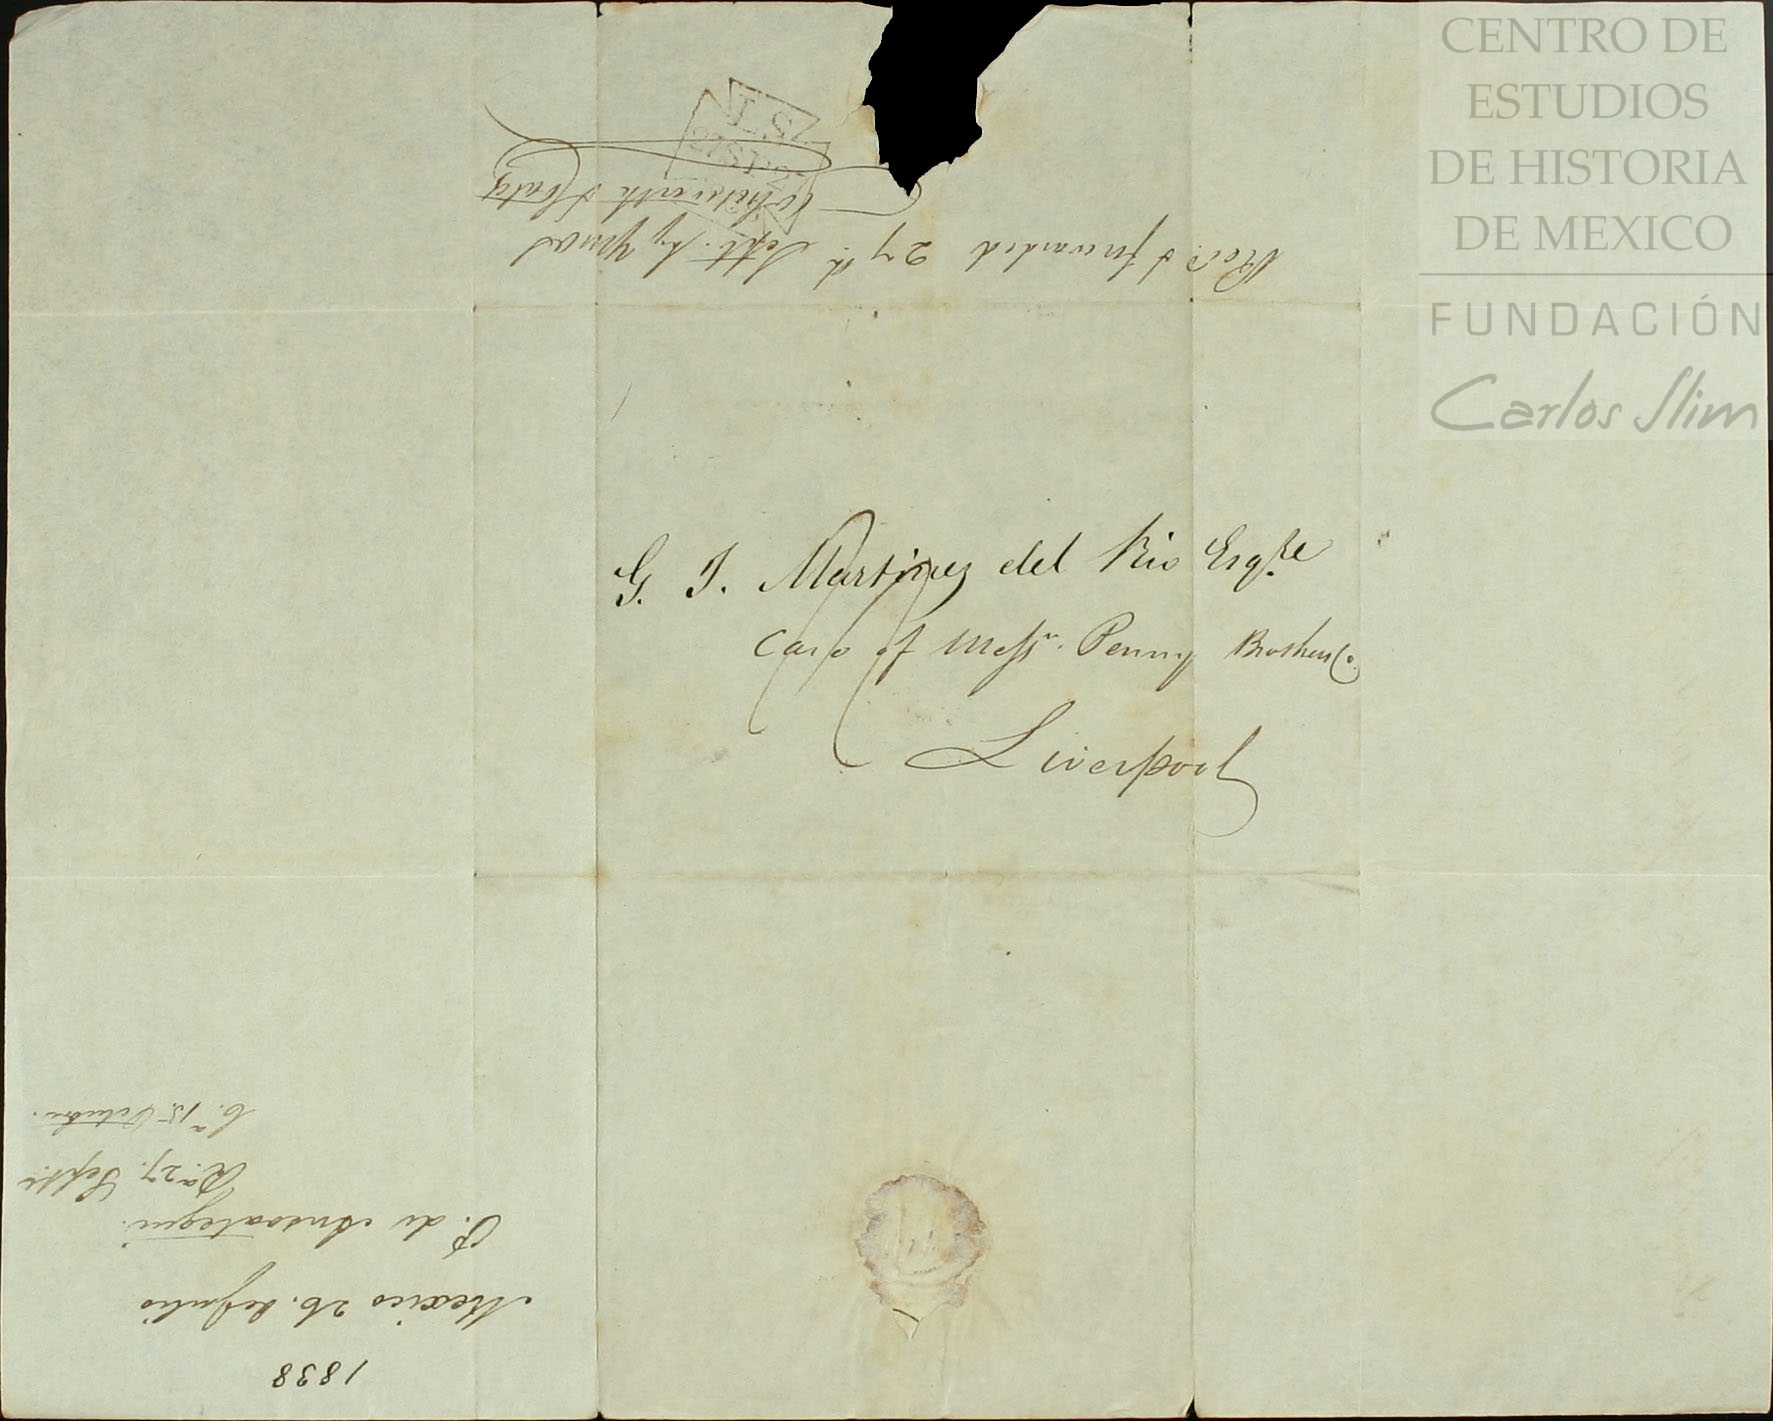 CENTRO DE
ESTUDIOS
DE HISTORIA
DE MEXICO
FUNDACIÓN
Carlos Slim
L.S.
Rec.d & forwarded 27th Sept. by
G. J. Martinez del Rio Esqre
Care of Messrs. Penny Brothers Co.
Liverpool
1838
Mexico 26. de Julio
P. de Ansoategui.
Ra. 27. Sept.e
Ca. 15 Octubre.